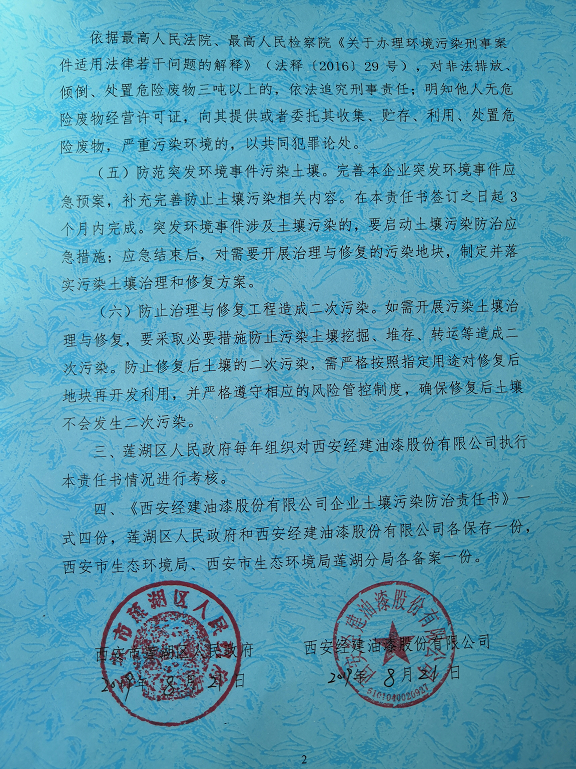 依据最高人民法院、最高人民检察院《关于办理环境污染刑事案
件适用法律若干问题的解释》（法释〔2016〕29 号），对非法排放、
倾倒、处置危险废物三吨以上的，依法追究刑事责任；明知他人无危
险废物经营许可证，向其提供或者委托其收集、贮存、利用、处置危
险废物，严重污染环境的，以共同犯罪论处。
（五）防范突发环境事件污染土壤。完善本企业突发环境事件应
急预案，补充完善防止土壤污染相关内容。在本责任书签订之日起 3
个月内完成。突发环境事件涉及土壤污染的，要启动土壤污染防治应
急措施；应急结束后，对需要开展治理与修复的污染地块，制定并落
实污染土壤治理和修复方案。
（六）防止治理与修复工程造成二次污染。如需开展污染土壤治
理与修复，要采取必要措施防止污染土壤挖掘、堆存、转运等造成二
次污染。防止修复后土壤的二次污染，需严格按照指定用途对修复后
地块再开发利用，并严格遵守相应的风险管控制度，确保修复后土壤
不会发生二次污染。
三、莲湖区人民政府每年组织对西安经建油漆股份有限公司执行
本责任书情况进行考核。
四、《西安经建油漆股份有限公司企业土壤污染防治责任书》一
式四份，莲湖区人民政府和西安经建油漆股份有限公司各保存一份，
西安市生态环境局、西安市生态环境局莲湖分局各备案一份。
西安市莲湖区人民政府
西安经建油漆股份有限公司
2019年 8月21日
2019年 8月21日
西安市莲湖区人民政府
西安经建油漆股份有限公司
2